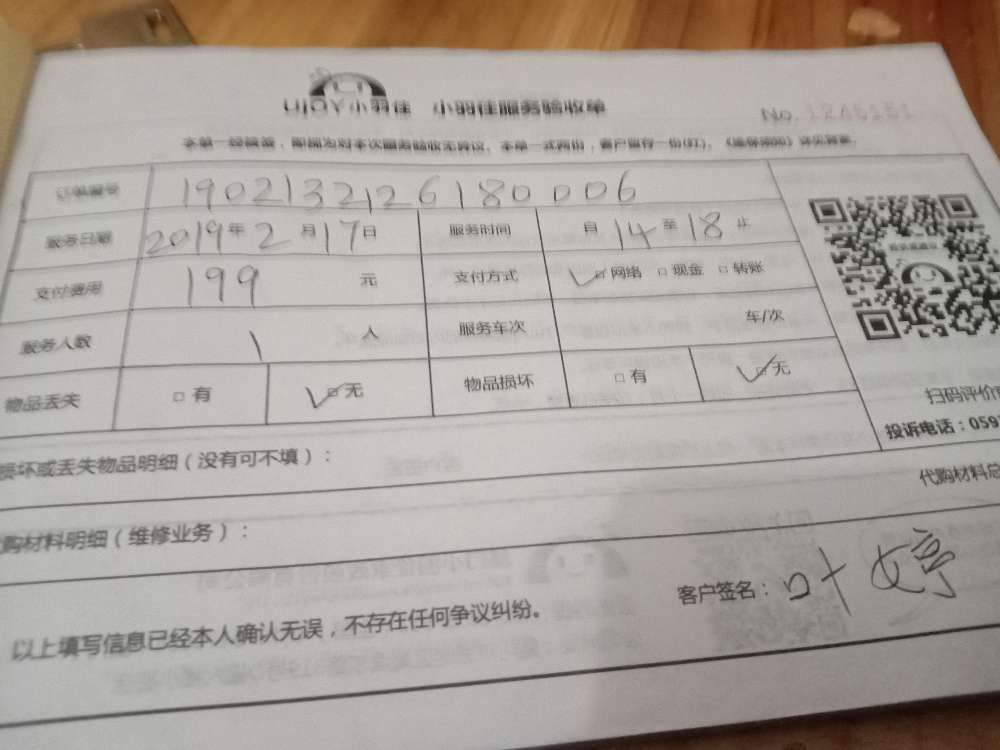 小羽佳 小羽佳服务验收单 No. 1245151
本单一经签署，即视为对本次服务验收无异议。本单一式两份，客户留存一份(红)。
订单编号 1902132126180006
服务日期 2019年2月17日 服务时间 自14至18止
支付费用 199元 支付方式 ✓□网络 □现金 □转账
服务人数 1人 服务车次 车/次
物品丢失 □有 ✓□无 物品损坏 □有 ✓□无
扫码评价
投诉电话：059
损坏或丢失物品明细（没有可不填）：
代购材料总
购材料明细（维修业务）：
客户签名：叶婷
以上填写信息已经本人确认无误，不存在任何争议纠纷。